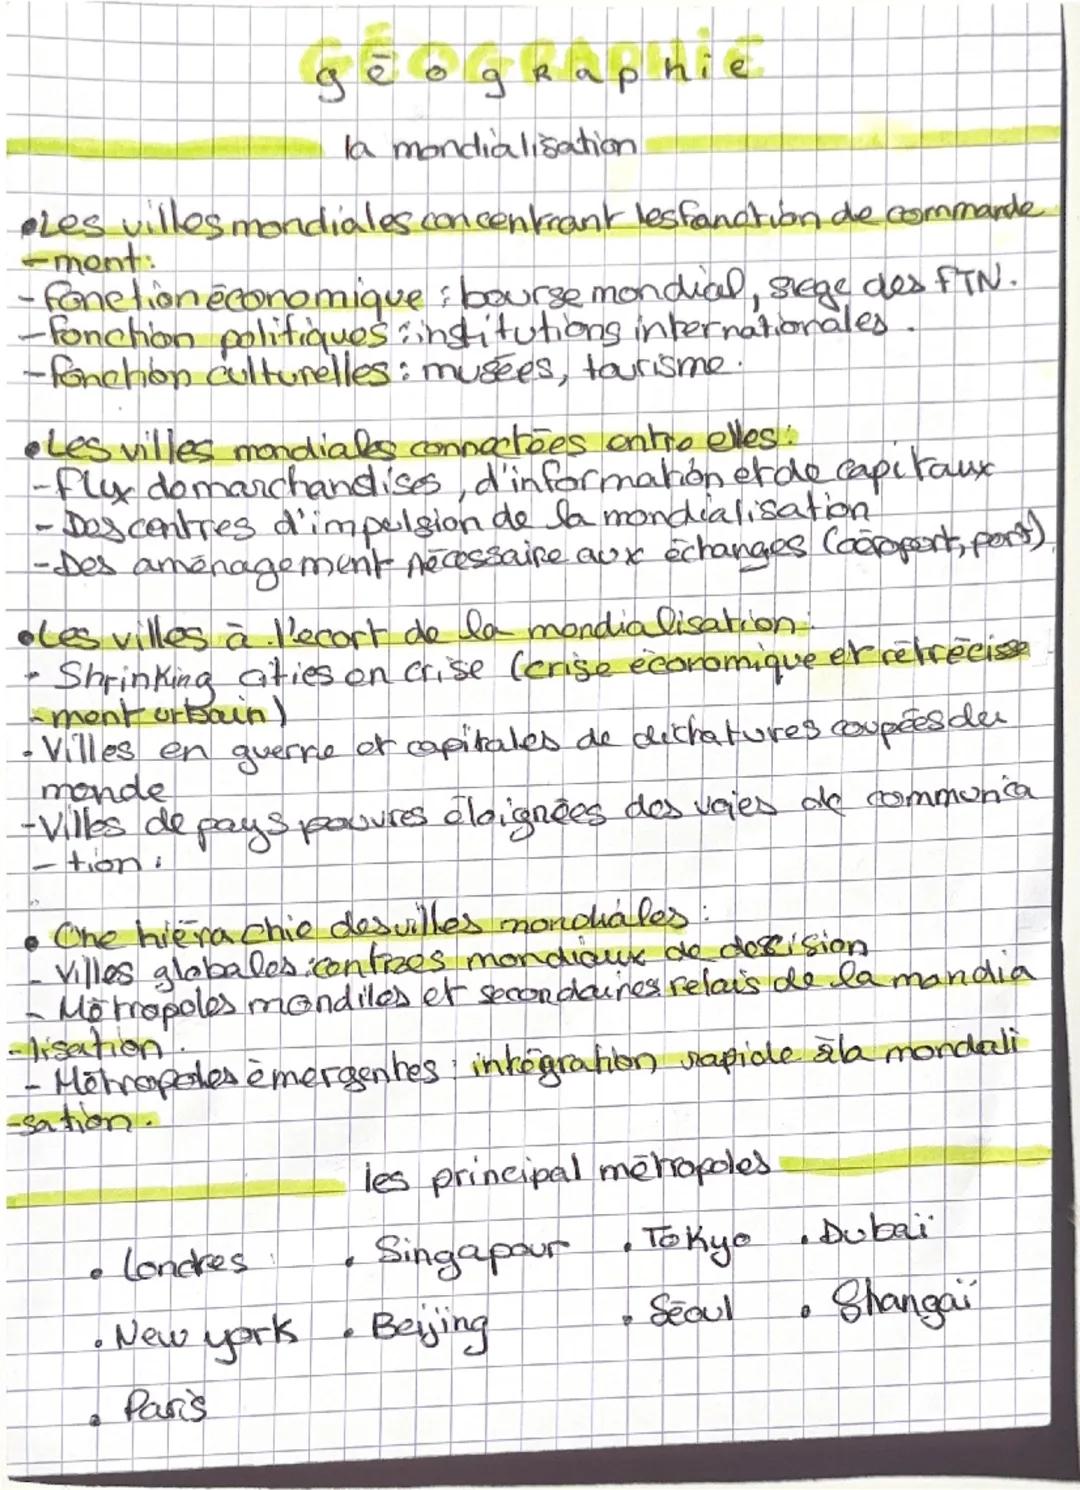 GÉOGRAPHIE
géographie
la mondialisation
•Les villes mondiales concentrant les fonction de commande
-ment:
- fonction économique : bourse mondial, siege des FTN.
- fonction politiques : institutions internationales.
- fonction culturelles : musées, tourisme.
•Les villes mondiales connectées entre elles:
- flux de marchandises, d'information et de capitaux
- Des centres d'impulsion de la mondialisation
- Des aménagement nécessaire aux échanges (aéroport, port)
•Les villes à l'ecart de la mondialisation:
- Shrinking cities en crise (crise économique et rétrécisse
-ment urbain)
- Villes en guerre et capitales de dichatures coupées du
monde
- Villes de pays pauvres éloignées des voies de communica
-tion.
• Une hiérachie des villes mondiales:
- Villes globales: centres mondiaux de descision
- Métropoles mondiles et secondaires relais de la mondia
-lisation.
- Métropoles émergentes: intégration rapide à la mondali
-sation.
les principal métropoles
• Londres • Singapour • Tokyo • Dubaï
• New york • Beijing • Séoul • Shangaï
• Paris